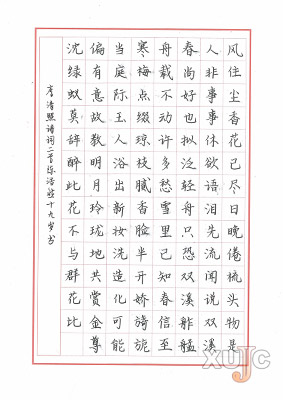 风住尘香花已尽日晚倦梳头物是
人非事事休欲语泪先流闻说双溪
春尚好也拟泛轻舟只恐双溪舴艋
舟载不动许多愁雪里已知春信至
寒梅点缀琼枝腻香脸半开娇旖旎
当庭际玉人浴出新妆洗造化可能
偏有意故教明月玲珑地共赏金尊
沈绿蚁莫辞醉此花不与群花比
李清照诗词二首 十九岁书
XUJC